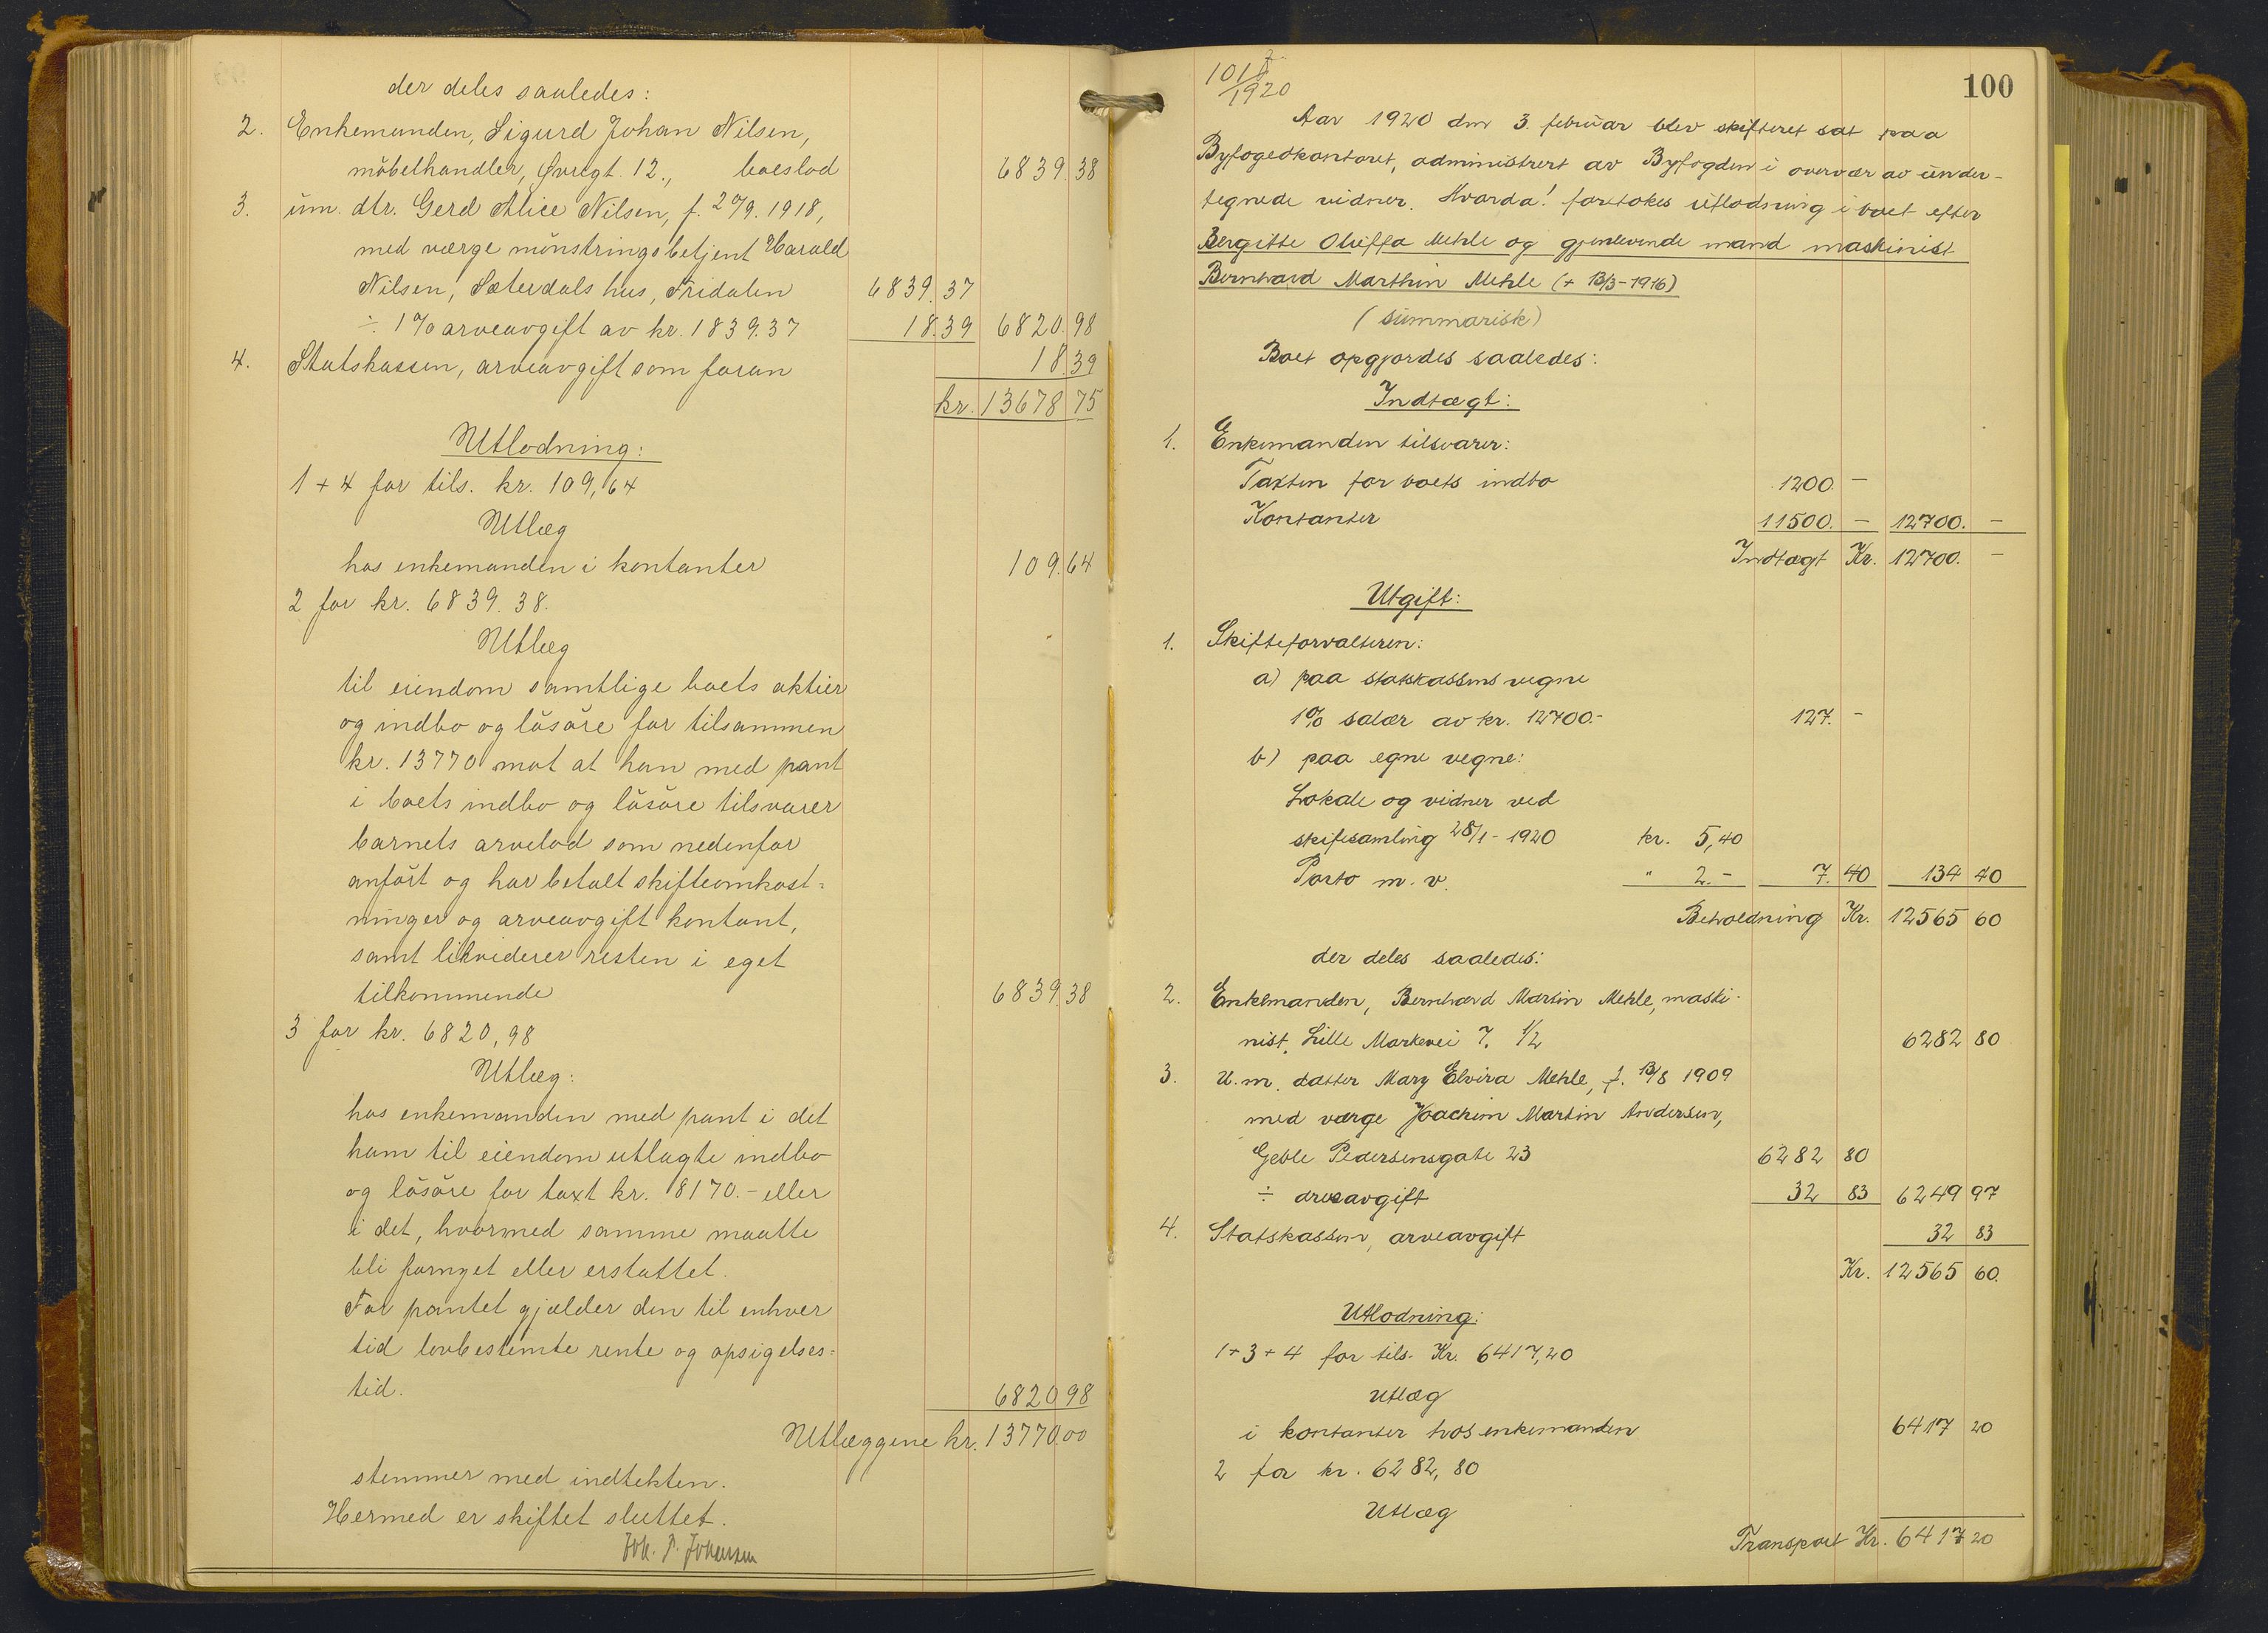 der deles saaledes:
2. Enkemanden, Sigurd Johan Nilsen,
möbelhandler, Øvregt. 12., boeslod 6839.38
3. um. dtr. Gerd Alice Nilsen, f. 27/9. 1918,
med værge mönstringsbetjent Harald
Nilsen, Sæterdals hus, Fridalen 6839.37
÷ 1% arveavgift av kr. 1839.37 18.39 6820.98
4. Statskassen, arveavgift som foran 18.39
kr. 13678 75
Utlodning:
1 + 4 for tils. kr. 109,64
Utlæg
hos enkemanden i kontanter 109.64
2 for kr. 6839.38.
Utlæg
til eiendom samtlige boets aktier
og indbo og lösöre for tilsammen
kr. 13770 mot at han med pant
i boets indbo og lösöre tilsvarer
barnets arvelod som nedenfor
anfört og har betalt skifteomkost=
ninger og arveavgift kontant,
samt likviderer resten i eget
tilkommende 6839.38
3 for kr. 6820,98
Utlæg:
hos enkemanden med pant i det
ham til eiendom utlagte indbo
og lösöre for taxt kr. 8170.- eller
i det, hvormed samme maatte
bli fornyet eller erstattet.
For pantet gjælder den til enhver
tid lovbestemte rente og opsigelses=
tid. 6820 98
Utlæggene kr. 13770.00
stemmer med indtekten.
Hermed er skiftet sluttet.
Joh. P. Johansen
100
/1920
Aar 1920 den 3. februar blev skifteret sat paa
Byfogedkontoret, administrert av Byfogden i overvær av under-
tegnede vidner. Hvorda! foretokes utlodning i boet efter
Bergitte Oluffa Mehle og gjenlevende mand maskinist
Bernhard Marthin Mehle (+ 13/3-1916)
(summarisk)
Boet opgjordes saaledes:
Indtægt:
1. Enkemanden tilsvarer:
Taxten for boets indbo 1200. -
Kontanter 11500. - 12700. -
Indtægt Kr. 12700. -
Utgift:
1. Skifteforvalteren:
a) paa statskassens vegne
1% salær av kr. 12700.- 127. -
b) paa egne vegne:
Lokale og vidner ved
skiftesamling 28/1 - 1920 kr. 5,40
Porto m. v. " 2.- 7.40 134 40
Beholdning Kr. 12565 60
der deles saaledes:
2. Enkemanden, Bernhard Martin Mehle, maski-
nist, Lille Markevei 7. 1/2 6282 80
3. U. m. datter Mary Elvira Mehle, f. 13/8 1909
med værge Joachim Martin Andersen,
Geble Pedersensgate 23 6282 80
÷ arveavgift 32 83 6249 97
4. Statskassen, arveavgift 32 83
Kr. 12565 60.
Utlodning:
1 + 3 + 4 for tils. Kr. 6417,20
Utlæg
i kontanter hos enkemanden 6417 20
2 for kr. 6282,80
Utlæg
Transport Kr. 6417 20